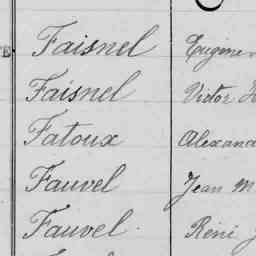 Faisnel Eugène
Faisnel Victor
Fatoux Alexand
Fauvel Jean M
Fauvel Réné J